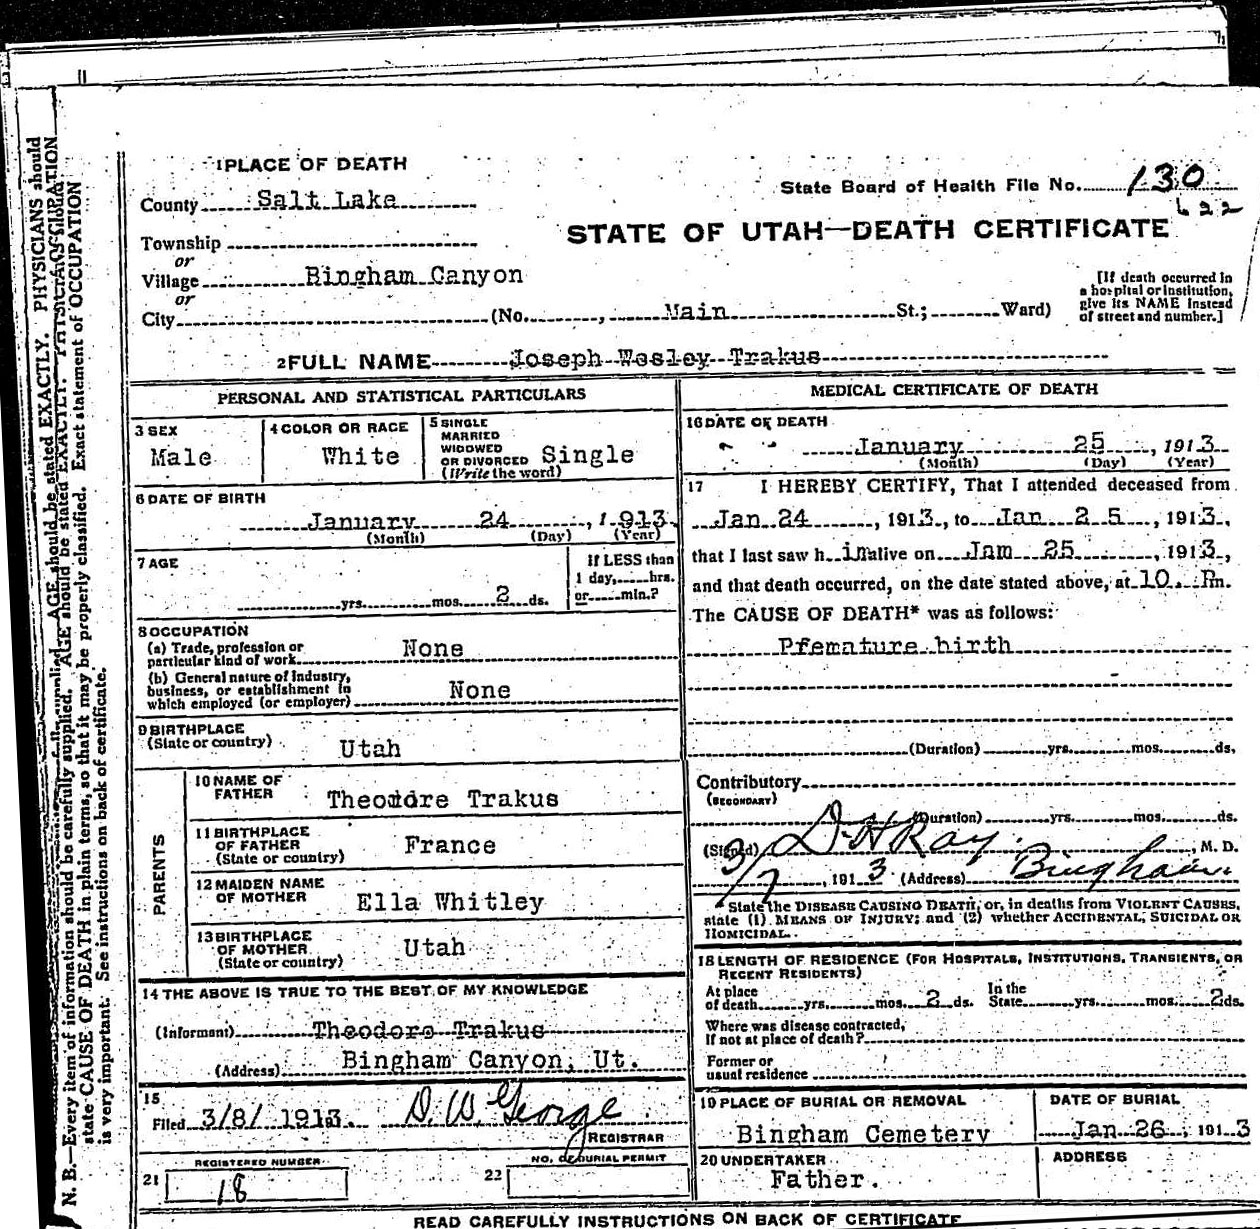 1 PLACE OF DEATH
County Salt Lake
State Board of Health File No. 130
622
STATE OF UTAH—DEATH CERTIFICATE
Township
or
Village Bingham Canyon
or
City (No. , Main St.; Ward)
[If death occurred in
a hospital or institution,
give its NAME instead
of street and number.]
2 FULL NAME Joseph Wesley Trakus
PERSONAL AND STATISTICAL PARTICULARS
3 SEX
Male
4 COLOR OR RACE
White
5 SINGLE
MARRIED
WIDOWED
OR DIVORCED Single
(Write the word)
6 DATE OF BIRTH
January 24, 1913
(Month) (Day) (Year)
7 AGE
yrs. mos. 2 ds.
If LESS than
1 day, hrs.
or min.?
8 OCCUPATION
(a) Trade, profession or
particular kind of work None
(b) General nature of industry,
business, or establishment in
which employed (or employer) None
9 BIRTHPLACE
(State or country) Utah
PARENTS
10 NAME OF
FATHER Theodore Trakus
11 BIRTHPLACE
OF FATHER
(State or country) France
12 MAIDEN NAME
OF MOTHER Ella Whitley
13 BIRTHPLACE
OF MOTHER
(State or country) Utah
14 THE ABOVE IS TRUE TO THE BEST OF MY KNOWLEDGE
(Informant) Theodore Trakus
(Address) Bingham Canyon, Ut.
15
Filed 3/8/ 1913 D. W. George
REGISTRAR
REGISTERED NUMBER
21 18
NO. OF BURIAL PERMIT
22
MEDICAL CERTIFICATE OF DEATH
16 DATE OF DEATH
January 25, 1913
(Month) (Day) (Year)
17 I HEREBY CERTIFY, That I attended deceased from
Jan 24, 1913, to Jan 25, 1913,
that I last saw h im alive on Jam 25, 1913,
and that death occurred, on the date stated above, at 10. Pm.
The CAUSE OF DEATH* was as follows:
Premature birth
(Duration) yrs. mos. ds.
Contributory
(SECONDARY)
(Duration) yrs. mos. ds.
(Signed) D. H Ray, M. D.
3/7, 1913 (Address) Bingham
State the DISEASE CAUSING DEATH, or, in deaths from VIOLENT CAUSES,
state (1) MEANS OF INJURY; and (2) whether ACCIDENTAL, SUICIDAL OR
HOMICIDAL.
18 LENGTH OF RESIDENCE (FOR HOSPITALS, INSTITUTIONS, TRANSIENTS, OR
RECENT RESIDENTS)
At place
of death yrs. mos. 2 ds.
In the
State yrs. mos. 2 ds.
Where was disease contracted,
If not at place of death?
Former or
usual residence
19 PLACE OF BURIAL OR REMOVAL
Bingham Cemetery
DATE OF BURIAL
Jan 26, 1913
20 UNDERTAKER
Father.
ADDRESS
READ CAREFULLY INSTRUCTIONS ON BACK OF CERTIFICATE
N. B.—Every item of information should be carefully supplied. AGE should be stated EXACTLY. PHYSICIANS should
state CAUSE OF DEATH in plain terms, so that it may be properly classified. Exact statement of OCCUPATION
is very important. See instructions on back of certificate.